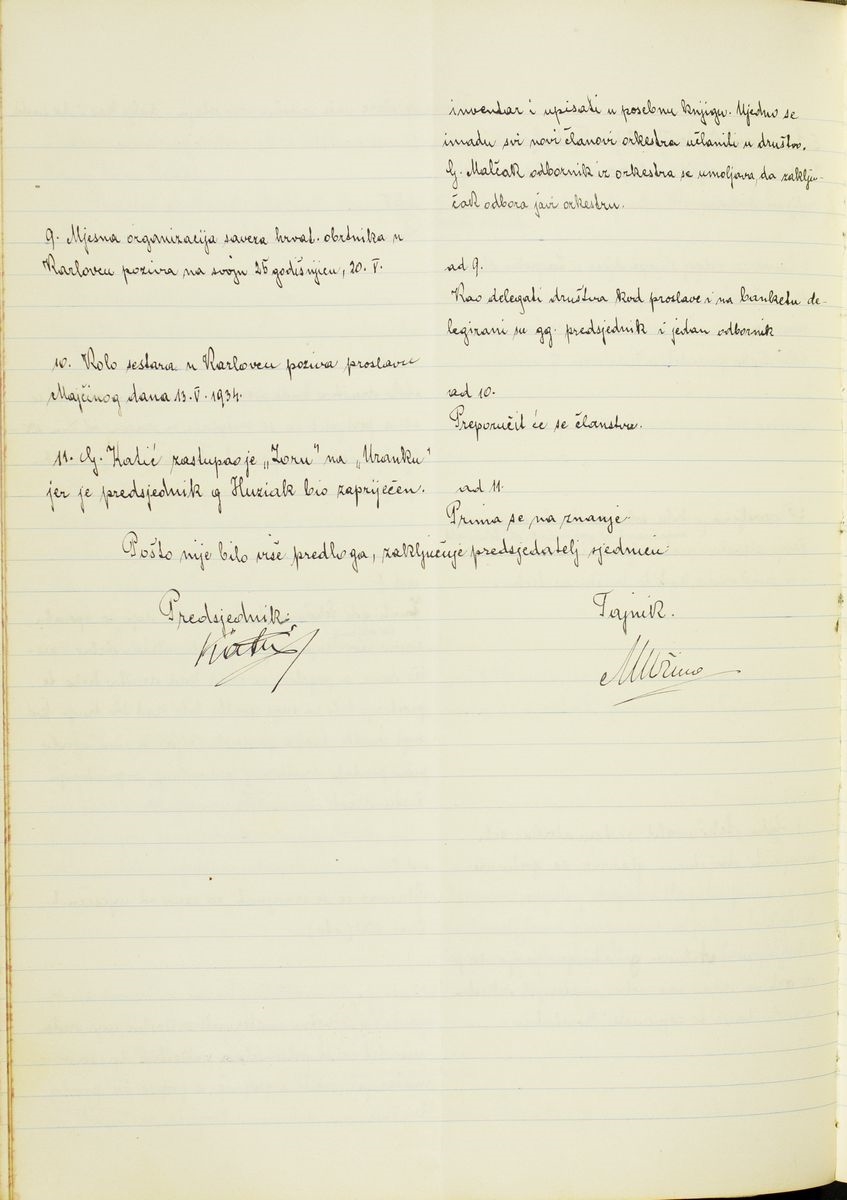 inventar i upisati u posebnu knjigu. Ujedno se
imadu svi novi članovi orkestra učlaniti u društvo.
G. Malčak odbornik iz orkestra se umoljava, da zaklju-
čak odbora javi orkestru.
9. Mjesna organizacija saveza hrvat. obrtnika u
Karlovcu poziva na svoju 25 godišnjicu, 20. V.
ad 9.
Kao delegati društva kod proslave i na banketu de-
legirani su gg. predsjednik i jedan odbornik
10. Kolo sestara u Karlovcu poziva proslavu
Majčinog dana 13. V. 1934.
ad 10.
Preporučit će se članstvu.
11. G. Katić zastupao je „Zoru" na „Uranku"
jer je predsjednik g Huziak bio zapriječen.
ad 11.
Prima se na znanje.
Pošto nije bilo više predloga, zaključuje predsjedatelj sjednicu.
Predsjednik:
Katić
Tajnik.